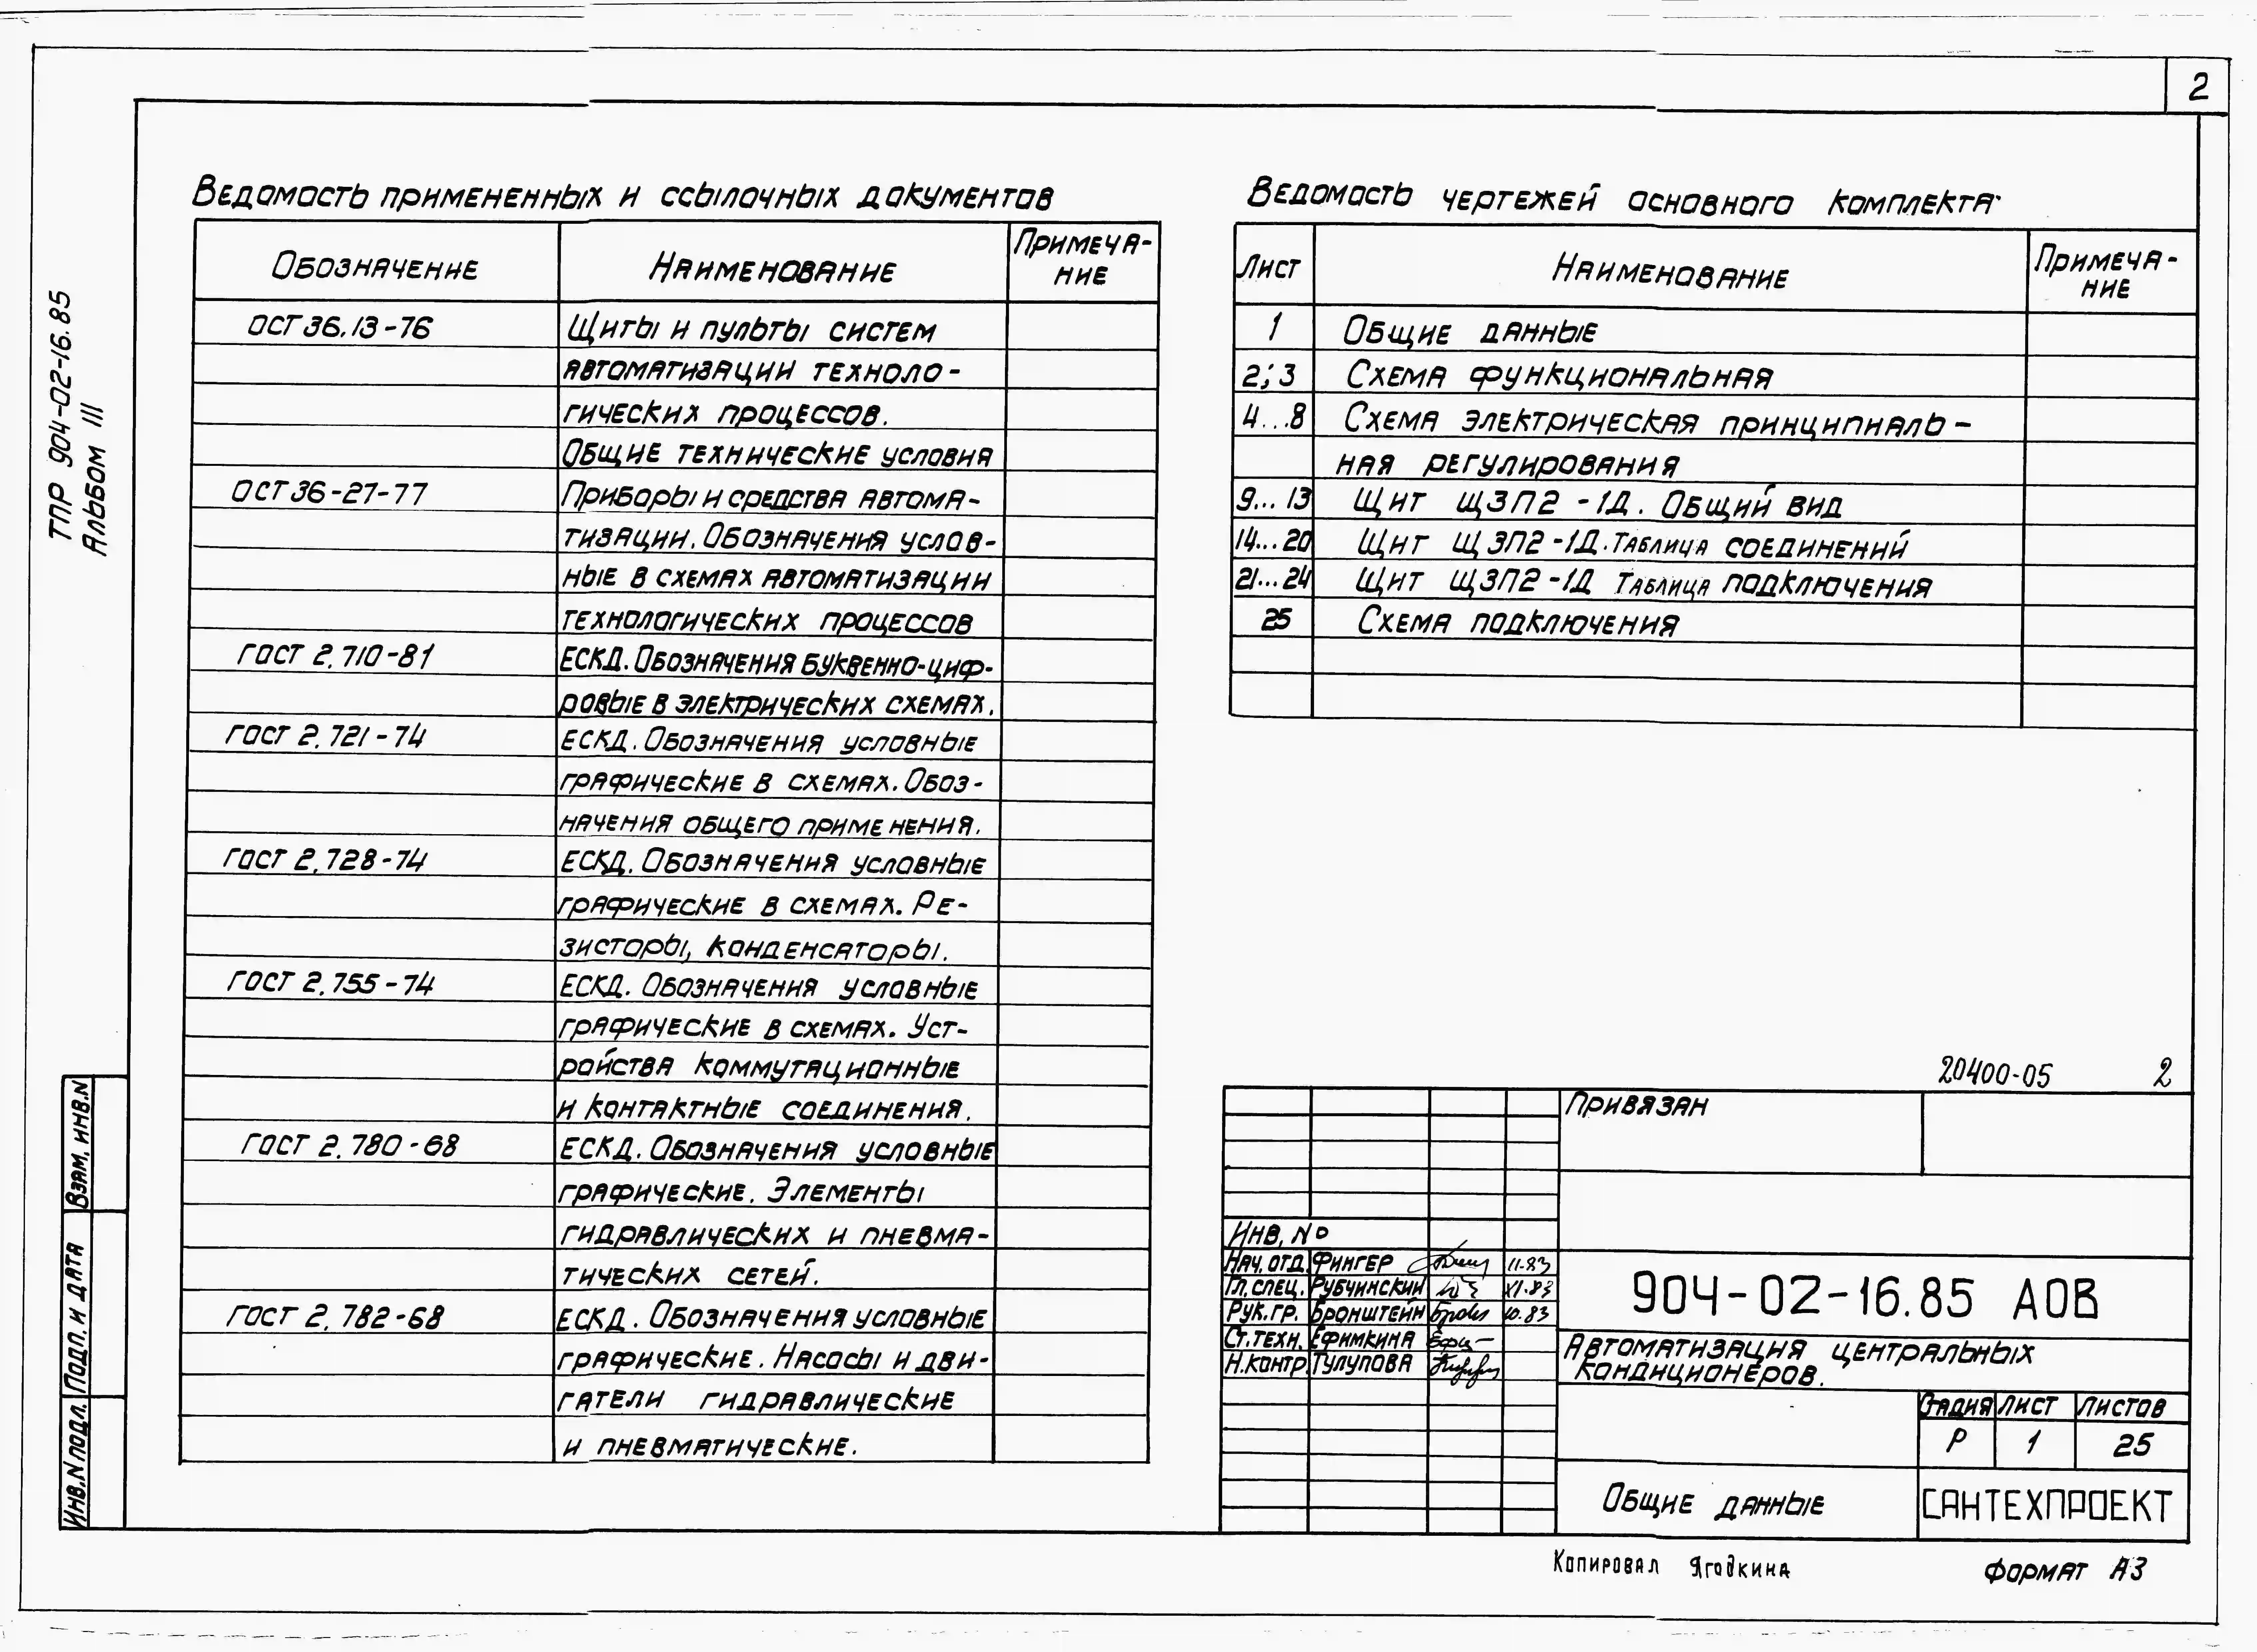 2
ТПР 904-02-16.85
Альбом III
Ведомость примененных и ссылочных документов
Обозначение Наименование Примеча-
ние
ОСТ 36.13-76 Щиты и пульты систем
автоматизации техноло-
гических процессов.
Общие технические условия
ОСТ 36-27-77 Приборы и средства автома-
тизации. Обозначения услов-
ные в схемах автоматизации
технологических процессов
ГОСТ 2.710-81 ЕСКД. Обозначения буквенно-циф-
ровые в электрических схемах.
ГОСТ 2.721-74 ЕСКД. Обозначения условные
графические в схемах. Обоз-
начения общего применения.
ГОСТ 2.728-74 ЕСКД. Обозначения условные
графические в схемах. Ре-
зисторы, конденсаторы.
ГОСТ 2.755-74 ЕСКД. Обозначения условные
графические в схемах. Уст-
ройства коммутационные
и контактные соединения.
ГОСТ 2.780-68 ЕСКД. Обозначения условные
графические. Элементы
гидравлических и пневма-
тических сетей.
ГОСТ 2.782-68 ЕСКД. Обозначения условные
графические. Насосы и дви-
гатели гидравлические
и пневматические.
Ведомость чертежей основного комплекта
Лист Наименование Примеча-
ние
1 Общие данные
2; 3 Схема функциональная
4...8 Схема электрическая принципиаль-
ная регулирования
9...13 Щит ЩЗП2-1Д. Общий вид
14...20 Щит ЩЗП2-1Д. Таблица соединений
21...24 Щит ЩЗП2-1Д Таблица подключения
25 Схема подключения
20400-05 2
Привязан
Инв. №
Нач. отд. Фингер 11-83
Гл. спец. Рубчинский XI-83
Рук. гр. Бронштейн 10.83
Ст. техн. Ефимкина
Н. контр. Тулупова
904-02-16.85 АОВ
Автоматизация центральных
кондиционеров.
Стадия Лист Листов
Р 1 25
Общие данные
САНТЕХПРОЕКТ
Копировал Ягодкина Формат А3
Взам. инв. N
Подп. и дата
Инв. N подл.